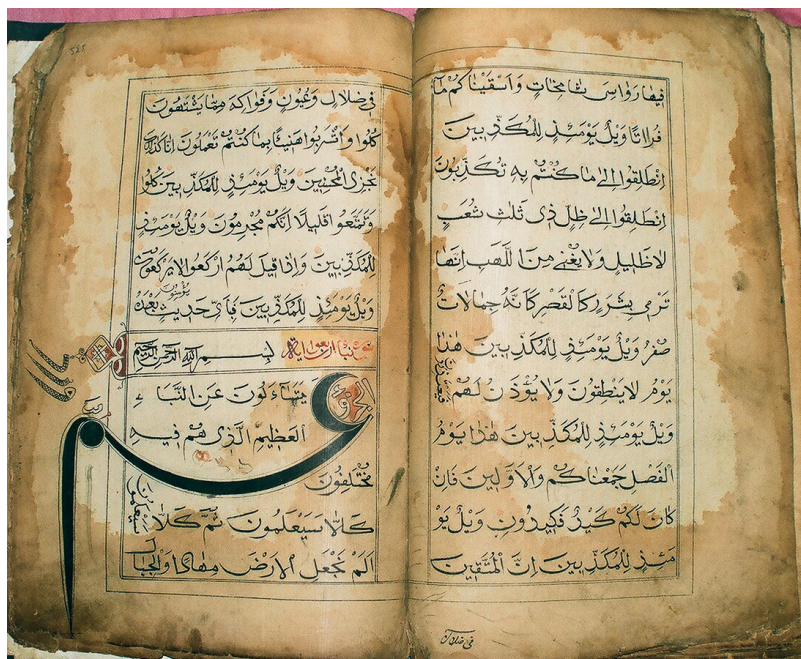 فِيهَا رَوَاسِيَ شَامِخَاتٍ وَاَسْقَيْنَاكُمْ مَاءً
فُرَاتًا وَيْلٌ يَوْمَئِذٍ لِلْمُكَذِّبِينَ
اِنْطَلِقُوا اِلَى مَا كُنْتُمْ بِهِ تُكَذِّبُونَ
اِنْطَلِقُوا اِلَى ظِلٍّ ذِى ثَلٰثِ شُعَبٍ
لَا ظَلِيلٍ وَلَا يُغْنِى مِنَ اللَّهَبِ اِنَّهَا
تَرْمِى بِشَرَرٍ كَالْقَصْرِ كَاَنَّهُ جِمَالَاتٌ
صُفْرٌ وَيْلٌ يَوْمَئِذٍ لِلْمُكَذِّبِينَ هٰذَا
يَوْمُ لَا يَنْطِقُونَ وَلَا يُؤْذَنُ لَهُمْ فَيَعْتَذِرُونَ
وَيْلٌ يَوْمَئِذٍ لِلْمُكَذِّبِينَ هٰذَا يَوْمُ
الْفَصْلِ جَمَعْنَاكُمْ وَالْاَوَّلِينَ فَاِنْ
كَانَ لَكُمْ كَيْدٌ فَكِيدُونِ وَيْلٌ يَوْ
مَئِذٍ لِلْمُكَذِّبِينَ اِنَّ الْمُتَّقِينَ
فِى ضلَالٍ وَعُيُونٍ وَفَوَاكِهَ مِمَّا يَشْتَهُونَ
كُلُوا وَاشْرَبُوا هَنِيئًا بِمَا كُنْتُمْ تَعْمَلُونَ اِنَّا كَذٰلِكَ
نَجْزِى الْمُحْسِنِينَ وَيْلٌ يَوْمَئِذٍ لِلْمُكَذِّبِينَ كُلُوا
وَتَمَتَّعُوا قَلِيلًا اِنَّكُمْ مُجْرِمُونَ وَيْلٌ يَوْمَئِذٍ
لِلْمُكَذِّبِينَ وَاِذَا قِيلَ لَهُمُ ارْكَعُوا لَا يَرْكَعُونَ
وَيْلٌ يَوْمَئِذٍ لِلْمُكَذِّبِينَ فَبِاَىِّ حَدِيثٍ بَعْدَهُ يُؤْمِنُونَ
بِسْمِ اللّٰهِ الرَّحْمٰنِ الرَّحِيمِ
عَمَّ يَتَسَاءَلُونَ عَنِ النَّبَاءِ
الْعَظِيمِ الَّذِى هُمْ فِيهِ
مُخْتَلِفُونَ
كَلَّا سَيَعْلَمُونَ ثُمَّ كَلَّا سَيَعْلَمُونَ
اَلَمْ نَجْعَلِ الْاَرْضَ مِهَادًا وَالْجِبَالَ